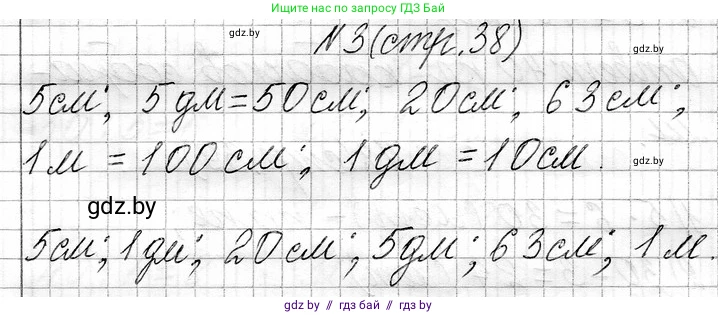 Ищите нас по запросу ГДЗ Бай
gdz.by
N3 (стр. 38)
gdz.by
5 см; 5 дм = 50 см; 20 см; 63 см;
1 м = 100 см; 1 дм = 10 см.
gdz.by
gdz.by
5 см; 1 дм; 20 см; 5 дм; 63 см; 1 м.
gdz.by // гдз бай // gdz.by